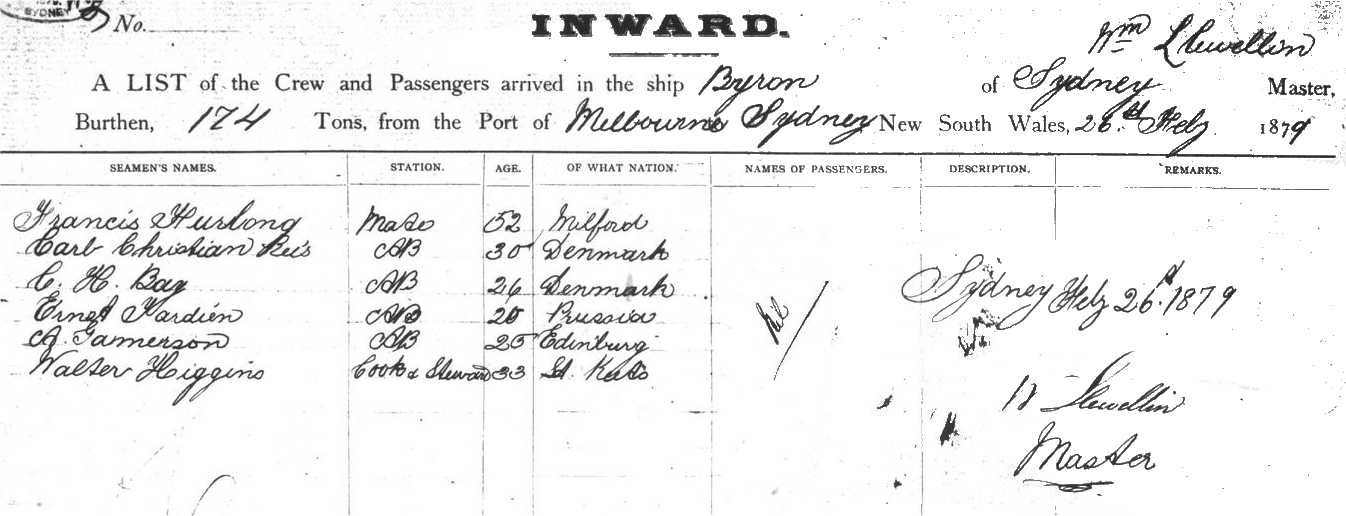 SYDNEY
No.
INWARD.
Wm Llewellin
A LIST of the Crew and Passengers arrived in the ship Byron of Sydney Master,
Burthen, 174 Tons, from the Port of Melbourne Sydney New South Wales, 26th Feby 1879
SEAMEN'S NAMES. STATION. AGE. OF WHAT NATION. NAMES OF PASSENGERS. DESCRIPTION. REMARKS.
Francis Mate 52 Milford
Carl Christian AB 30 Denmark
C. H. Bay AB 26 Denmark
Ernst AB Prussia
A. AB 25 Edinburg
Walter Higgins Cook & Steward 33 St. Kitts
Nil
Sydney Feby 26th 1879
W Llewellin
Master